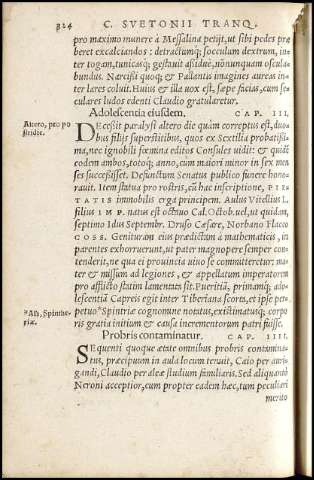 324 C. SVETONII TRANQ.
pro maximo munere à Messalina petijt, ut sibi pedes præ
beret excalciandos: detractumq; socculum dextrum, in
ter togam, tunicasq; gestauit assiduè, nónunquam oscula
bundus. Narcissi quoq; & Pallantis imagines aureas in
ter lares coluit. Huius & illa uox est, sæpe facias, cum se
culares ludos edenti Claudio gratularetur.
Adolescentia eiusdem. CAP. III.
Altero, pro po
stridie.
DEcessit paralysi altero die quàm correptus est, duo-
bus filijs superstitibus, quos ex Sextilia probatissi-
ma, nec ignobili fœmina editos Consules uidit: & quidẽ
eodem ambos, totoq; anno, cum maiori minor in sex men
ses successisset. Defunctum Senatus publico funere hono-
rauit. Item statua pro rostris, cũ hac inscriptione, PIE-
TATIS immobilis erga principem. Aulus Vitellius L.
filius IMP. natus est octauo Cal. Octob. uel, ut quidam,
septimo Idus Septembr. Druso Cæsare, Norbano Flacco
COSS. Genituram eius prædictam à mathematicis, ita
parentes exhorruerunt, ut pater magnopere semper con-
tenderit, ne qua ei prouincia uiuo se committeretur: ma-
ter & missum ad legiones, & appellatum imperatorem
pro afflicto statim lamentata sit. Pueritiã, primamq; ado
lescentiã Capreis egit inter Tiberiana scorta, et ipse per
petuo Spintriæ cognomine notatus, existimatusq; corpo
ris gratia initium & causa incrementorum patri fuisse.
Probris contaminatur. CAP. IIII.
SEquenti quoque ætate omnibus probris contamina-
tus, præcipuum in aula locum tenuit, Caio per auri-
gandi, Claudio per aleæ studium familiaris. Sed aliquantò
Neroni acceptior, cum propter eadem hæc, tum peculiari
merito